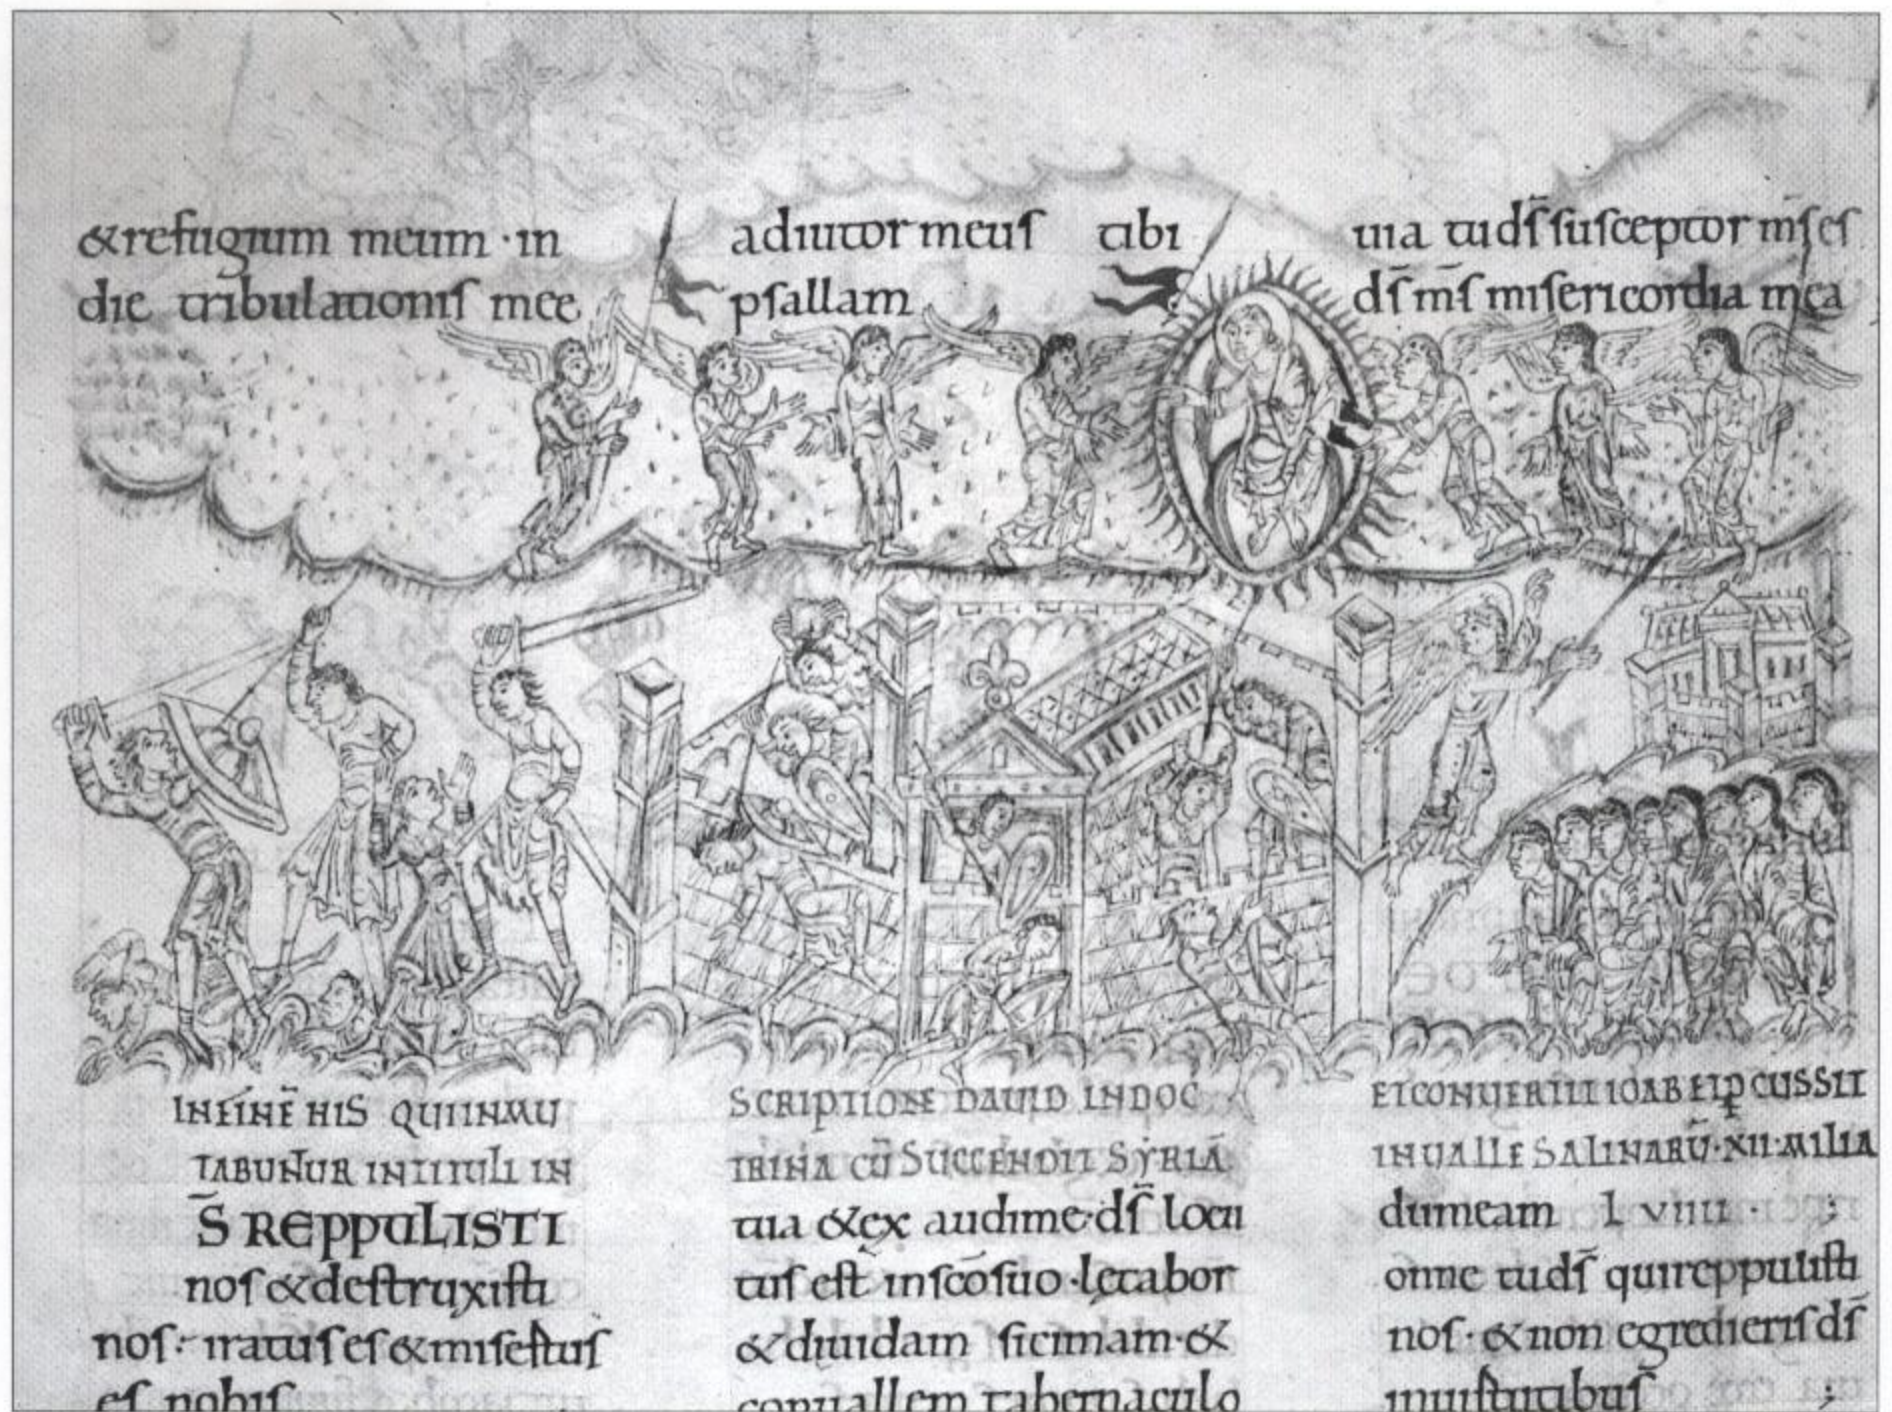 &refugium meum · in
die tribulationis mee
adiutor meus tibi
psallam
uia tu ds̄ susceptor m̄s es
ds̄ m̄s misericordia mea
IN FINĒ HIS QUI INMU
TABUNTUR IN TITULI IN
S̄ REPPULISTI
nos & destruxisti
nos · iratus es & misertus
es nobis
SCRIPTIONE DAUID IN DOC
TRINA CŪ SUCCENDIT SYRIĀ
tua & ex audi me · ds̄ locu
tus est in sc̄o suo · letabor
& diuidam sicimam · &
conuallem tabernaculo
ET CONUERTIT IOAB ET PCUSSIT
IN UALLE SALINARŪ · XII · MILIA
dumeam l viiii · ;
onne tu ds̄ qui reppulisti
nos · & non egredieris ds̄